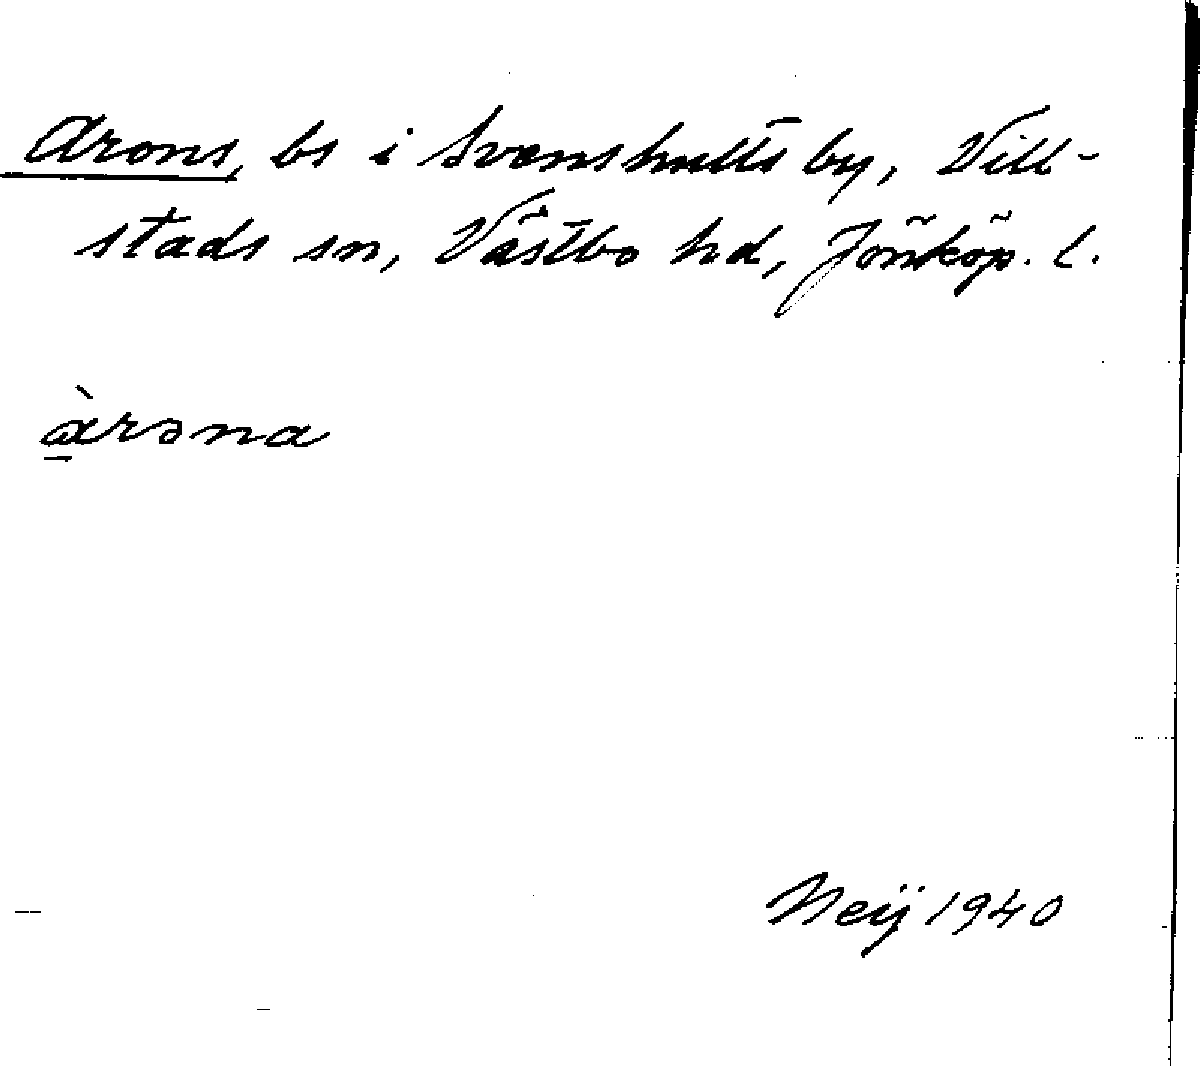 Arons, bs i Svenshults by, Vill-
stads sn, Västbo hd, Jönköp. l.
àrəna
Neij 1940